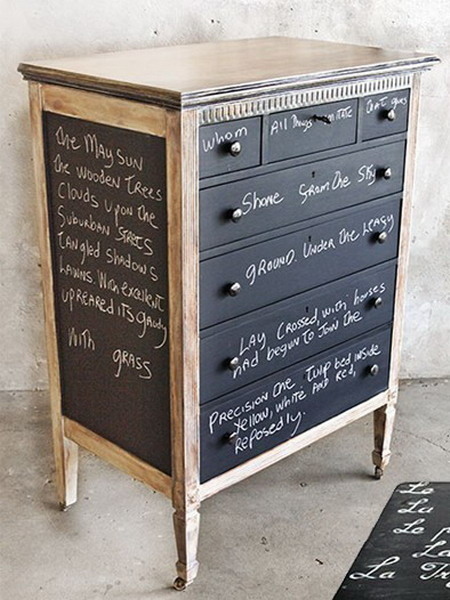 The May Sun
the wooden Trees
Clouds upon the
Suburban Streets
tangled shadows
Lawns. With excellent
upreared its gaudy
With grass
whom
All Things imitate
that guy
Shone from the Sky
ground. Under the Leafy
Lay Crossed, with horses
had begun to join the
Precision the Tulip bed inside
Yellow, white and red,
reposedly.
Le
La
Le
La
La